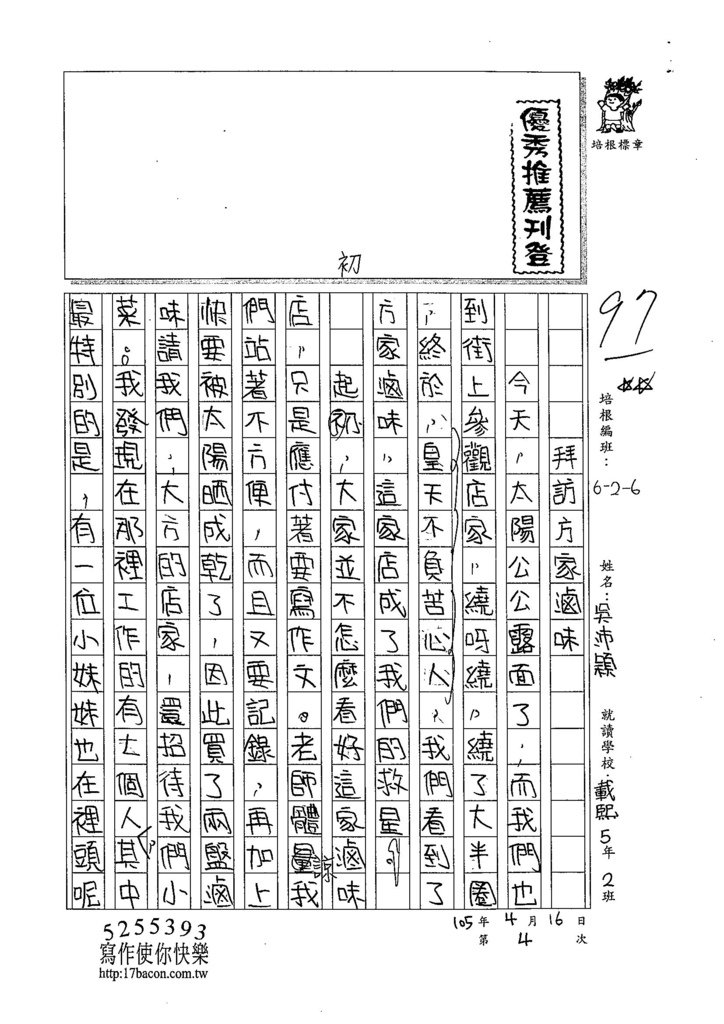 培根標章
優秀推薦刊登
初
97
培根編班：6-2-6
姓名：吳沛穎
就讀學校：載熙5年2班
拜訪方家滷味
今天，太陽公公露面了，而我們也
到街上參觀店家，繞呀繞，繞了大半圈
，終於，皇天不負苦心人，我們看到了
方家滷味，這家店成了我們的救星
起初，大家並不怎麼看好這家滷味
店，只是應付著要寫作文。老師體量我
諒
們站著不方便，而且又要記錄，再加上
快要被太陽晒成乾了，因此買了兩盤滷
味請我們，大方的店家，還招待我們小
菜。我發現在那裡工作的有七個人其中
最特別的是，有一位小妹妹也在裡頭呢
105年4月16日
第4次
5255393
寫作使你快樂
http:17bacon.com.tw